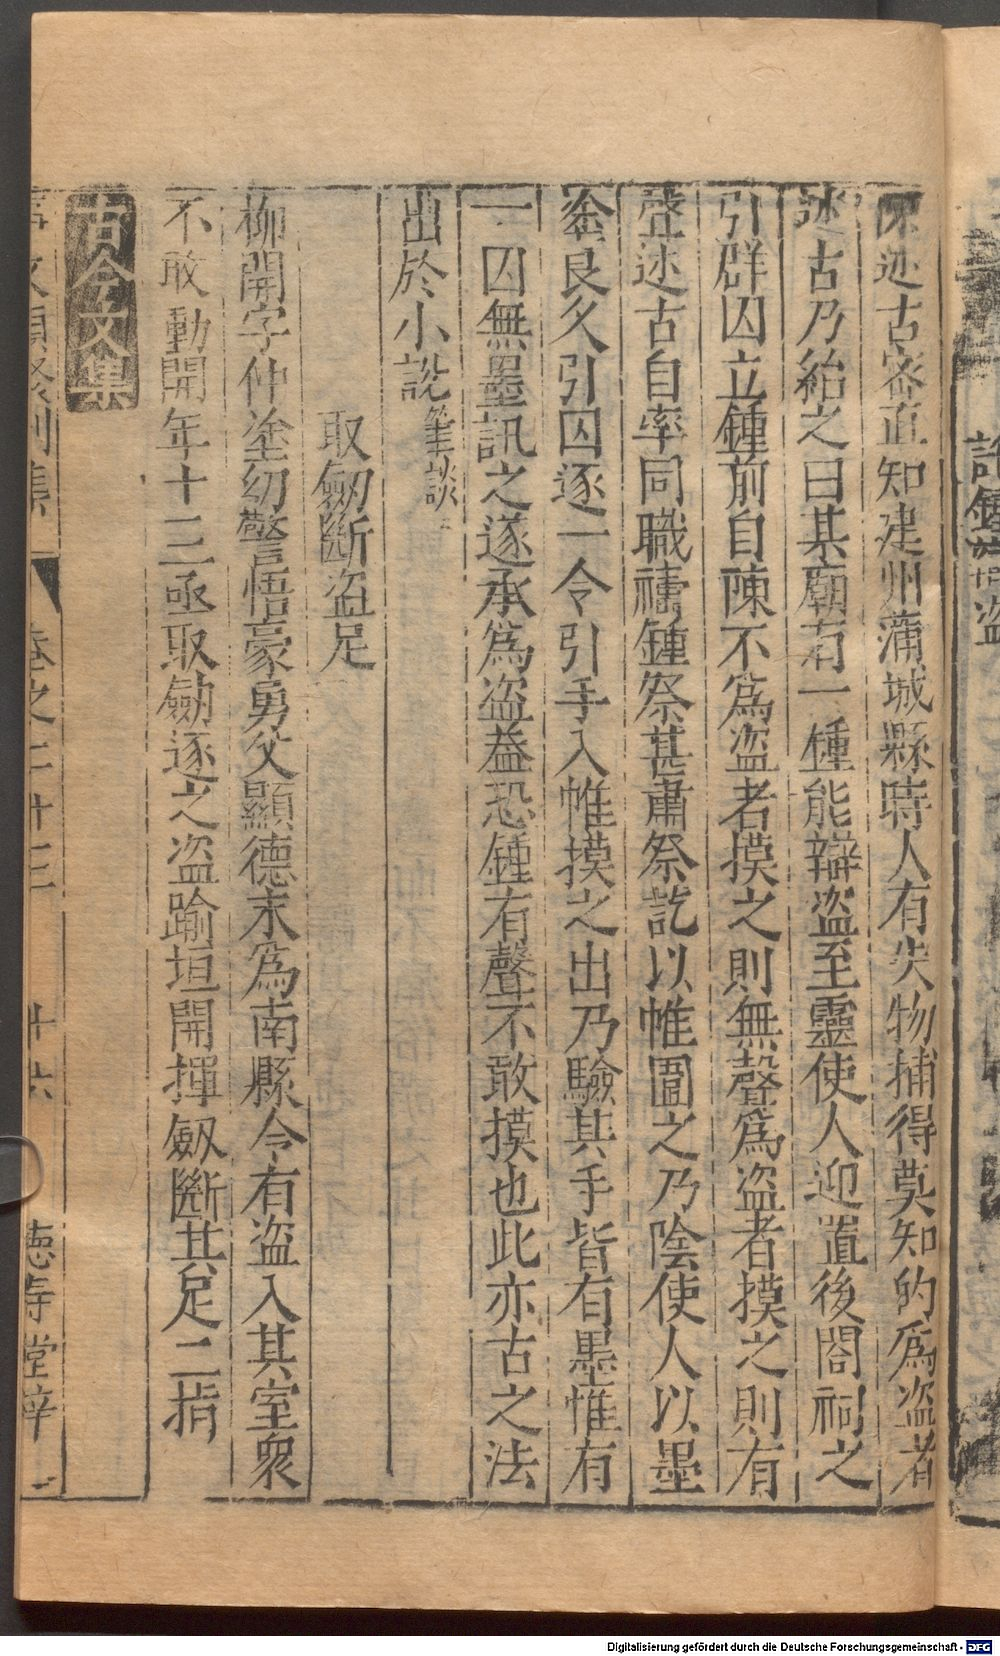 詐鍾辯盗
陳述古宻直知建州蒲城縣時人有失物捕得莫知的爲盗者
述古乃紿之曰某廟有一鍾能辯盗至靈使人迎置後閤祠之
引群囚立鍾前自陳不爲盗者摸之則無聲爲盗者摸之則有
聲述古自率同職禱鍾祭甚肅祭訖以帷圍之乃陰使人以墨
塗良久引囚逐一令引手入帷摸之出乃驗其手皆有墨惟有
一囚無墨訊之遂承爲盗蓋恐鍾有聲不敢摸也此亦古之法
出於小說筆談
取劔斷盗足
柳開字仲塗幼警悟豪勇父顯德末爲南縣令有盗入其室衆
不敢動開年十三亟取劔逐之盗踰垣開揮劔斷其足二指
古今文集
事文類聚別集 卷之二十三 廿六 德壽堂梓
Digitalisierung gefördert durch die Deutsche Forschungsgemeinschaft - DFG